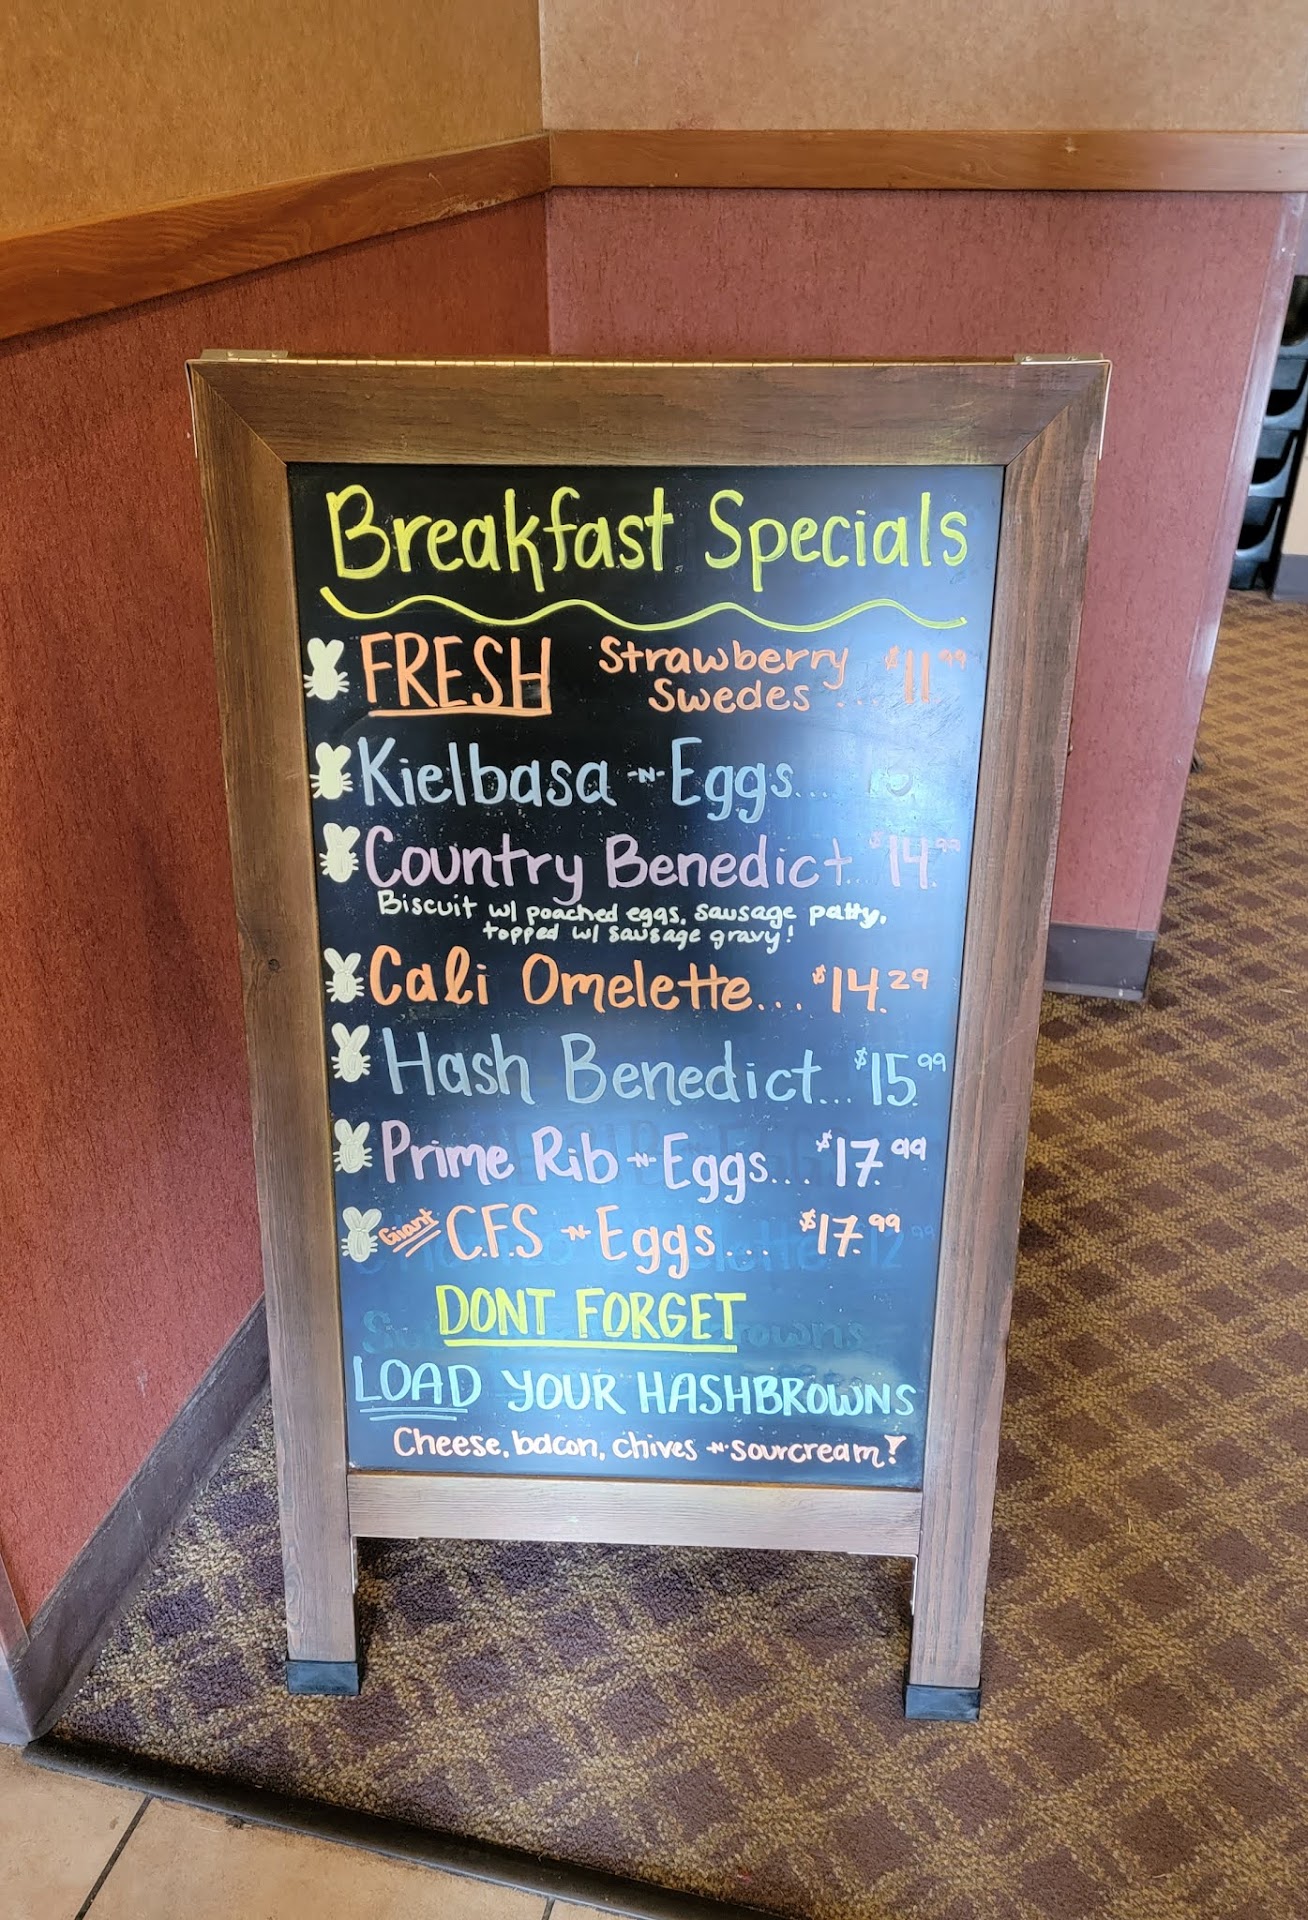 Breakfast Specials
FRESH Strawberry Swedes ... $11.99
Kielbasa -N- Eggs...
Country Benedict... $14.99
Biscuit w/ poached eggs, sausage patty,
topped w/ sausage gravy!
Cali Omelette... $14.29
Hash Benedict... $15.99
Prime Rib -N- Eggs... $17.99
Giant C.F.S -N- Eggs... $17.99
DONT FORGET
LOAD YOUR HASHBROWNS
Cheese, bacon, chives -N- sourcream!